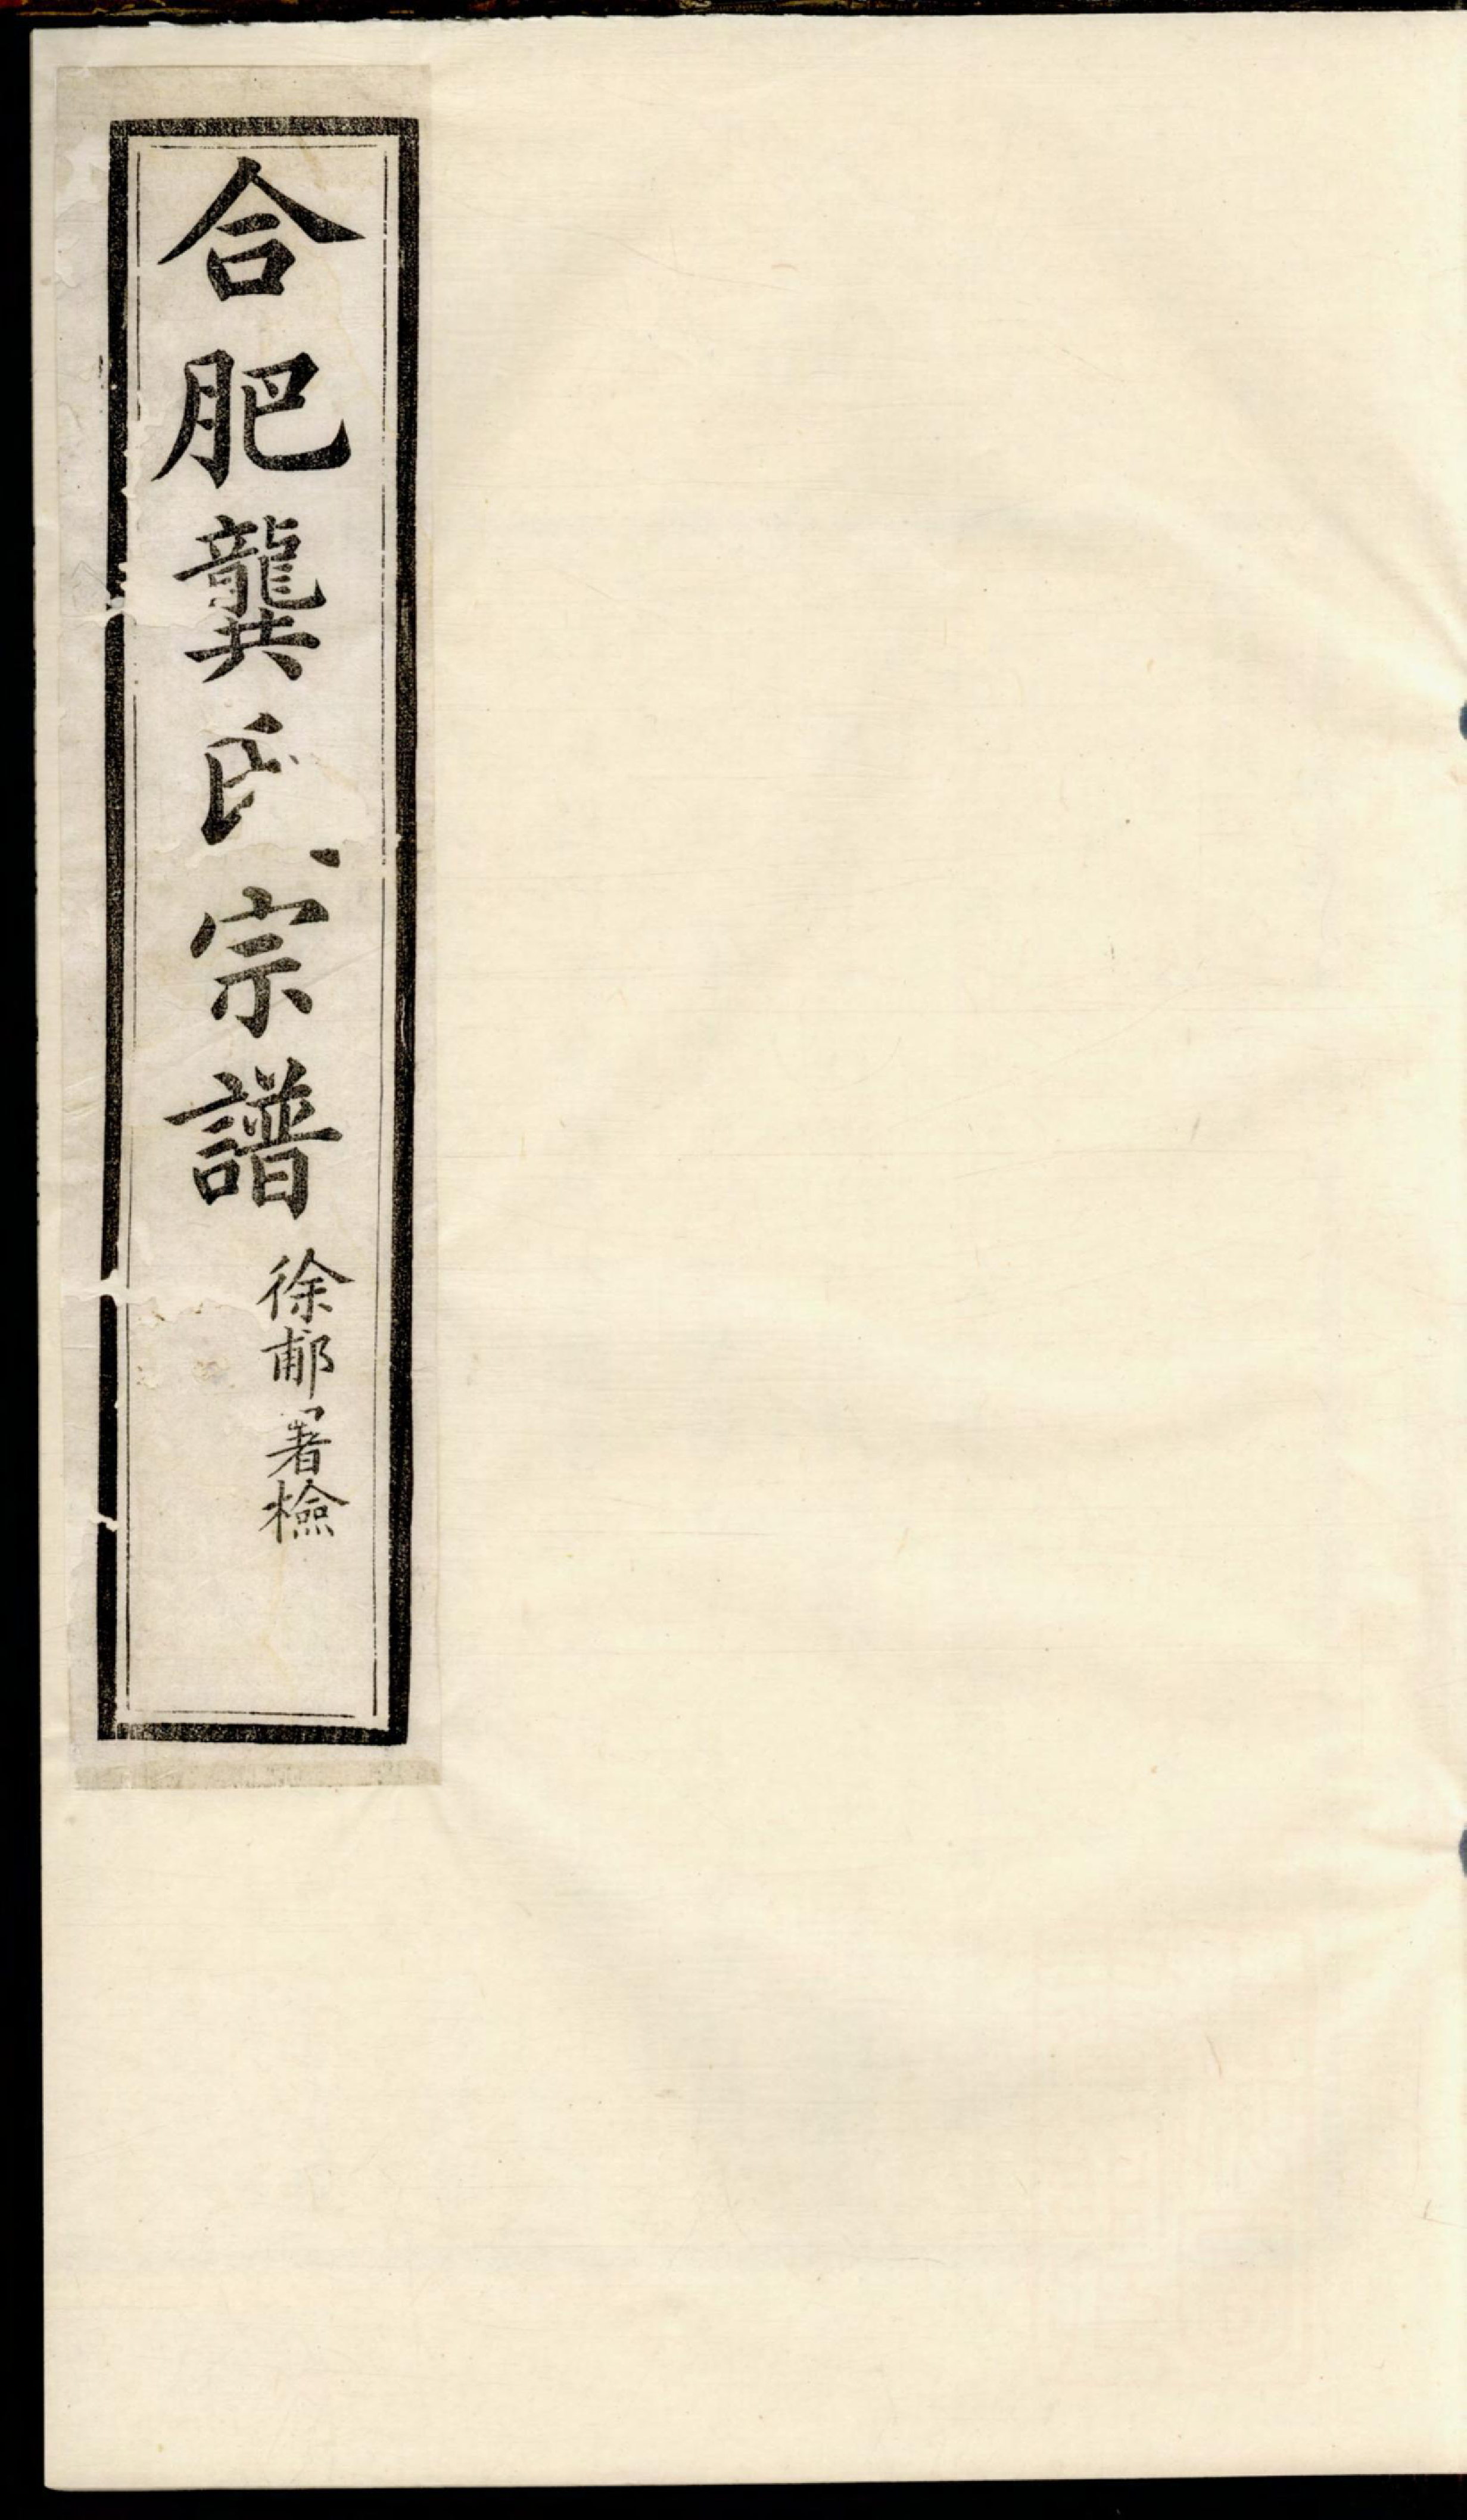 合肥龔氏宗譜
徐郙署檢